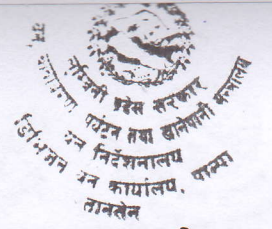 लुम्बिनी प्रदेश सरकार
वन, वातावरण, पर्यटन तथा खानेपानी मन्त्रालय
वन निर्देशनालय
डिभिजन वन कार्यालय, पाल्पा
तानसेन